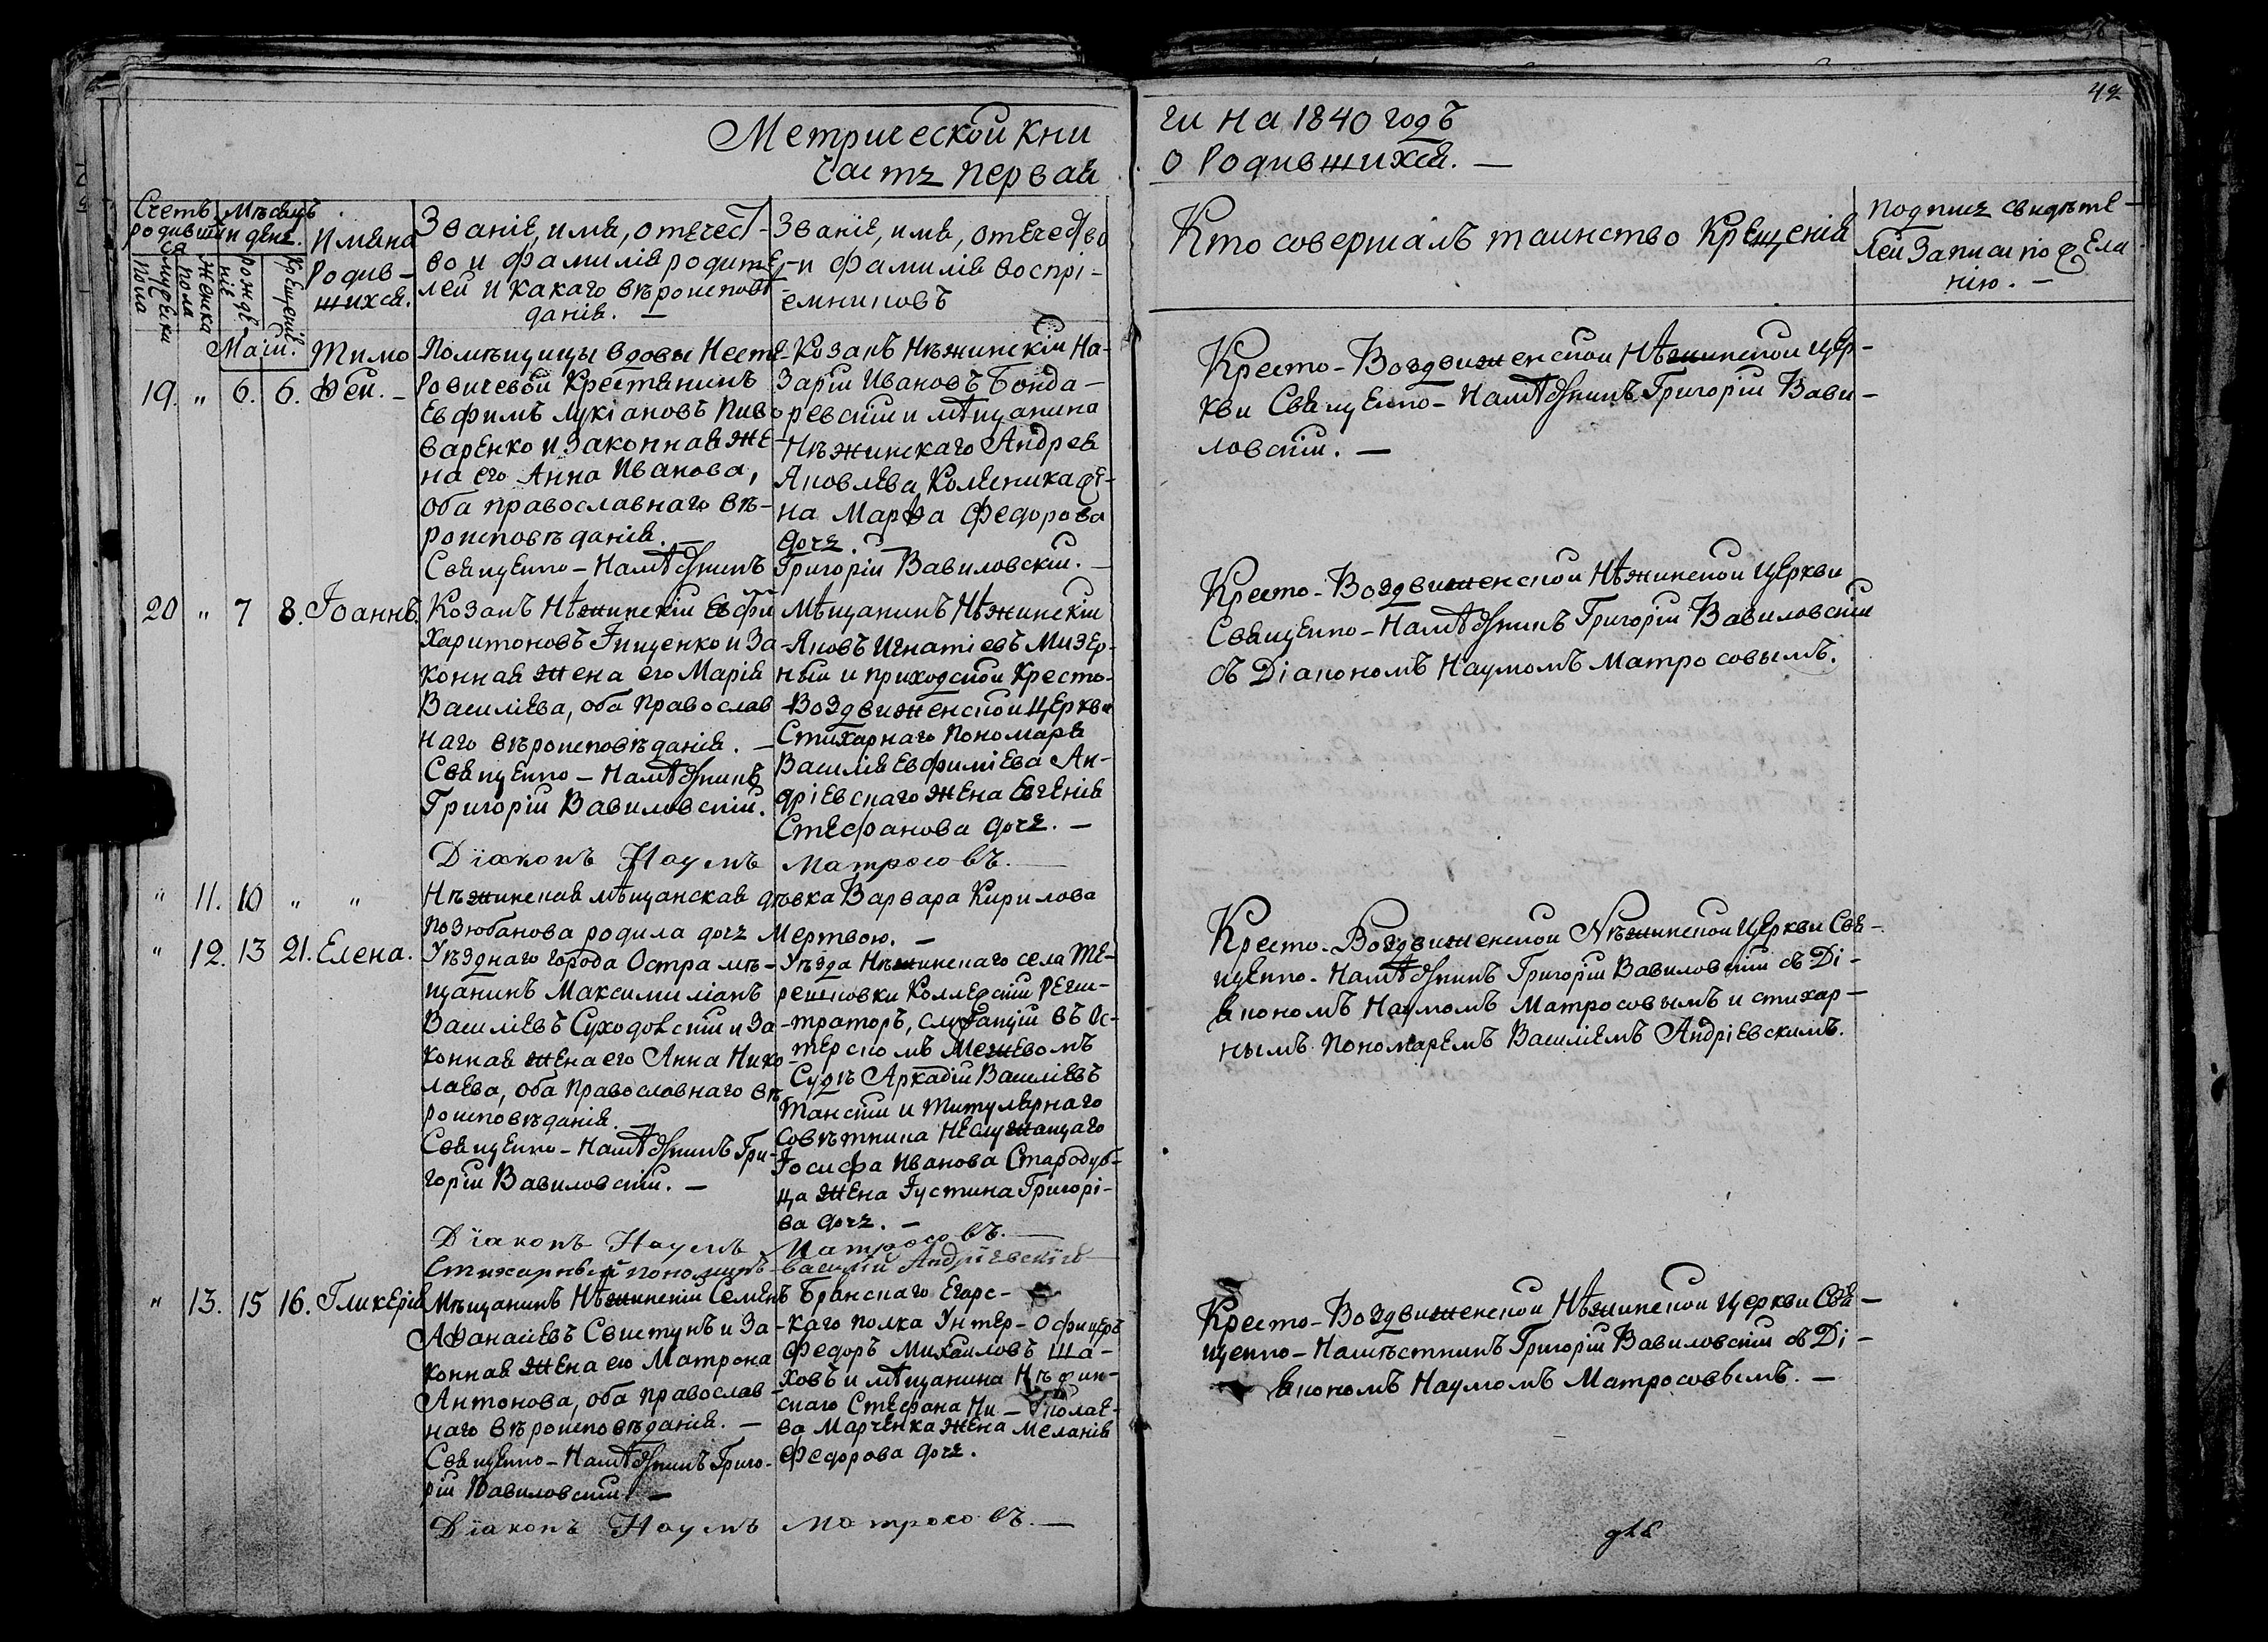 42
Метрической кни
ги на 1840 годъ
Часть первая
о Родившихся. —
Счетъ родившихся
мужеска пола
женска пола
Мѣсяцъ и день.
рожденіе
крещеніе
Имяна
Родив-
шихся.
Званіе, имя, отечест-
во и фамилія родите-
лей и какаго вѣроисповѣ
данія. —
Званіе, имя, отечество
и фамилія воспрі-
емниковъ
Кто совершалъ таинство Крещенія
Подпись свидѣте-
лей записи по жела
нію. —
Маій.
19. " 6. 6.
Тимо
ѳей. -
Помѣщицы вдовы Несте-
ровичевой Крестьянинъ
Евфимъ Лукіановъ Пиво
варенко и законная же-
на его Анна Иванова,
оба православнаго вѣ-
роисповѣданія. —
Священно-Намѣстникъ Григорій Вавиловскій. —
Козакъ Нѣжинскій На-
зарій Ивановъ Бонда-
ревскій и мѣщанина
Нѣжинскаго Андрея
Яковлева Колесника же-
на Марѳа Федорова
дочь. —
Кресто-Воздвиженской Нѣжинской цер-
кви Священно-Намѣстникъ Григорій Вави-
ловскій. —
20 " 7 8. Іоаннъ.
Козакъ Нѣжинскій Евфи
Харитоновъ Гнищенко и За-
конная жена его Марія
Василіева, оба Православ
наго вѣроисповѣданія. —
Священно-Намѣстникъ
Григорій Вавиловскій.
Мѣщанинъ Нѣжинскій
Яковъ Игнатіевъ Мизер-
ный и приходской Кресто-
Воздвиженской Церкви
Стихарнаго Пономаря
Василія Евфиміева Ан-
дріевскаго жена Евгенія
Стефанова дочь. —
Діаконъ Наумъ Матросовъ. —
Кресто-Воздвиженской Нѣжинской Церкви
Священно-Намѣстникъ Григорій Вавиловскій
съ Діакономъ Наумомъ Матросовымъ.
" 11. 10 " "
Нѣжинская мѣщанская дѣвка Варвара Кирилова
Позюбанова родила дочь мертвою. —
" 12. 13 21. Елена.
Уѣзднаго города Остра мѣ-
щанинъ Максимиліанъ
Василіевъ Суходовскій и За-
конная жена его Анна Нико
лаева, оба Православнаго вѣ
роисповѣданія. —
Священно-Намѣстникъ Гри-
горій Вавиловскій. —
Уѣзда Нѣжинскаго села Те-
решковки Коллежскій Реги-
траторъ, служащій въ Ос-
терскомъ Межевомъ
Судѣ Аркадій Василіевъ
Танскій и Титулярнаго
Совѣтника Неслужащаго
Іосифа Иванова Стародуб-
ца жена Іустина Григорі-
ва дочь. —
Діаконъ Наумъ Матросовъ. —
Стихарный пономарь Василій Андріевскій
Кресто-Воздвиженской Нѣжинской Церкви Свя-
щенно-Намѣстникъ Григорій Вавиловскій съ Ді-
якономъ Наумомъ Матросовымъ и стихар-
нымъ Пономаремъ Василіемъ Андріевскимъ.
" 13. 15 16. Гликерія
Мѣщанинъ Нѣжинскій Семенъ
Аѳанасіевъ Свистунъ и За-
конная жена его Матрона
Антонова, оба Православ-
наго вѣроисповѣданія. —
Священно-Намѣстникъ Григо-
рій Вавиловскій —
Брянскаго Егарс-
каго полка Унтер-Офицеръ
Федоръ Михаиловъ Ша-
ховъ и мѣщанина Нѣжин-
скаго Стефана Ни-колае-
ва Марченка жена Меланія
Федорова дочь.
Діаконъ Наумъ Матросовъ. —
Кресто-Воздвиженской Нѣжинской Церкви Свя-
щенно-Намѣстникъ Григорій Вавиловскій съ Ді-
якономъ Наумомъ Матросовымъ. —